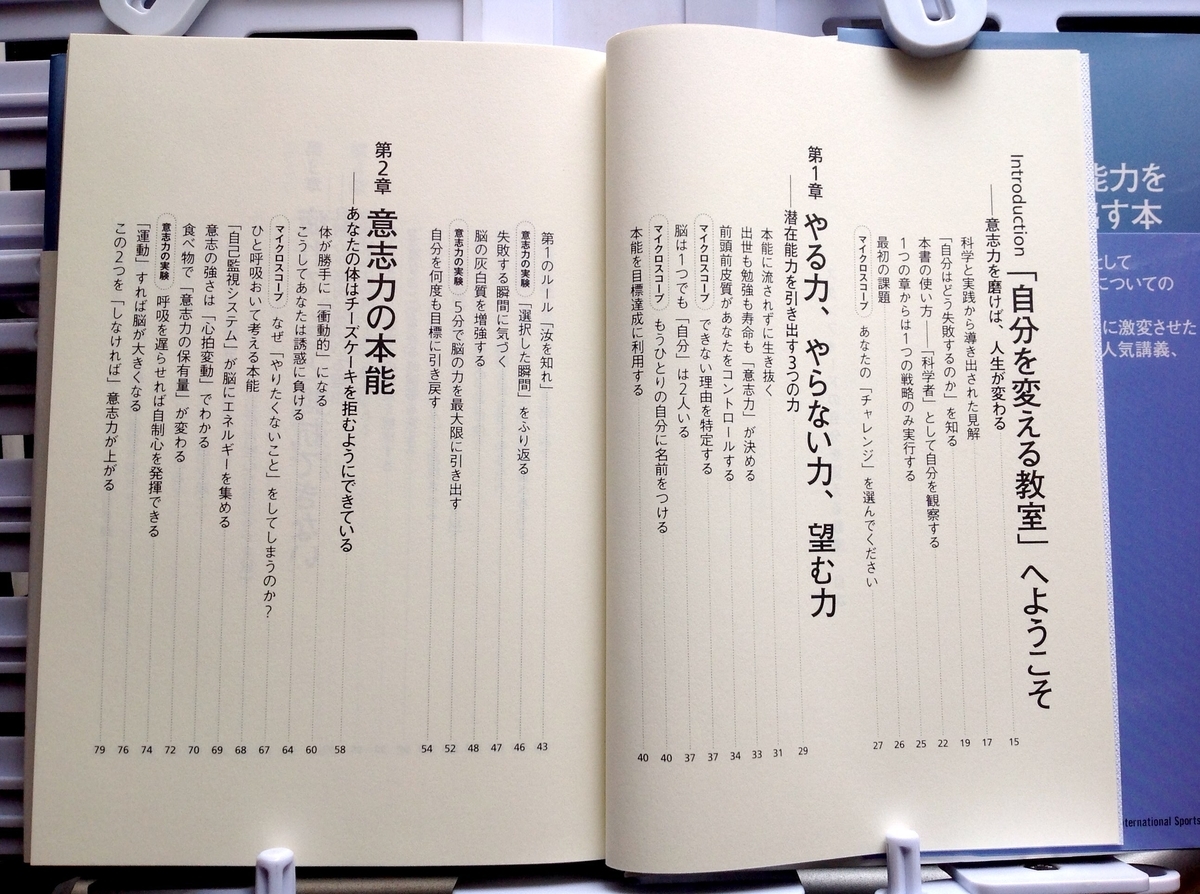 Introduction 「自分を変える教室」へようこそ
——意志力を磨けば、人生が変わる 15
科学と実践から導き出された見解 17
「自分はどう失敗するのか」を知る 19
本書の使い方——「科学者」として自分を観察する 22
1つの章からは1つの戦略のみ実行する 25
最初の課題 26
マイクロスコープ あなたの「チャレンジ」を選んでください 27
第1章 やる力、やらない力、望む力
——潜在能力を引き出す3つの力 29
本能に流されずに生き抜く 31
出世も勉強も寿命も「意志力」が決める 33
前頭前皮質があなたをコントロールする 34
マイクロスコープ できない理由を特定する 37
脳は1つでも「自分」は2人いる 37
マイクロスコープ もうひとりの自分に名前をつける 40
本能を目標達成に利用する 40
第1のルール「汝を知れ」 43
意志力の実験 「選択した瞬間」をふり返る 46
失敗する瞬間に気づく 47
脳の灰白質を増強する 48
意志力の実験 5分で脳の力を最大限に引き出す 52
自分を何度も目標に引き戻す 54
第2章 意志力の本能
——あなたの体はチーズケーキを拒むようにできている 58
体が勝手に「衝動的」になる 60
こうしてあなたは誘惑に負ける 64
マイクロスコープ なぜ「やりたくないこと」をしてしまうのか? 67
ひと呼吸おいて考える本能 68
「自己監視システム」が脳にエネルギーを集める 69
意志の強さは「心拍変動」でわかる 70
食べ物で「意志力の保有量」が変わる 72
意志力の実験 呼吸を遅らせれば自制心を発揮できる 74
「運動」すれば脳が大きくなる 76
この2つを「しなければ」意志力が上がる 79
能力を
す本
として
についての
に激変させた
人気講義、
ternational Sports